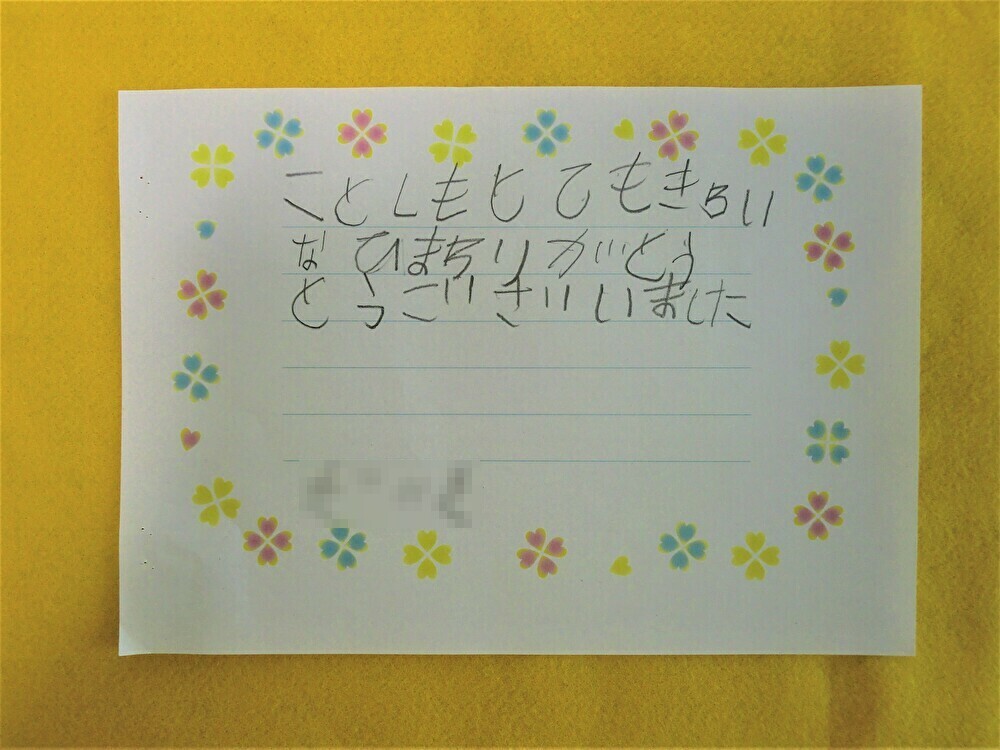 ことしもとてもきらい
なひまちりがとう
とうございました